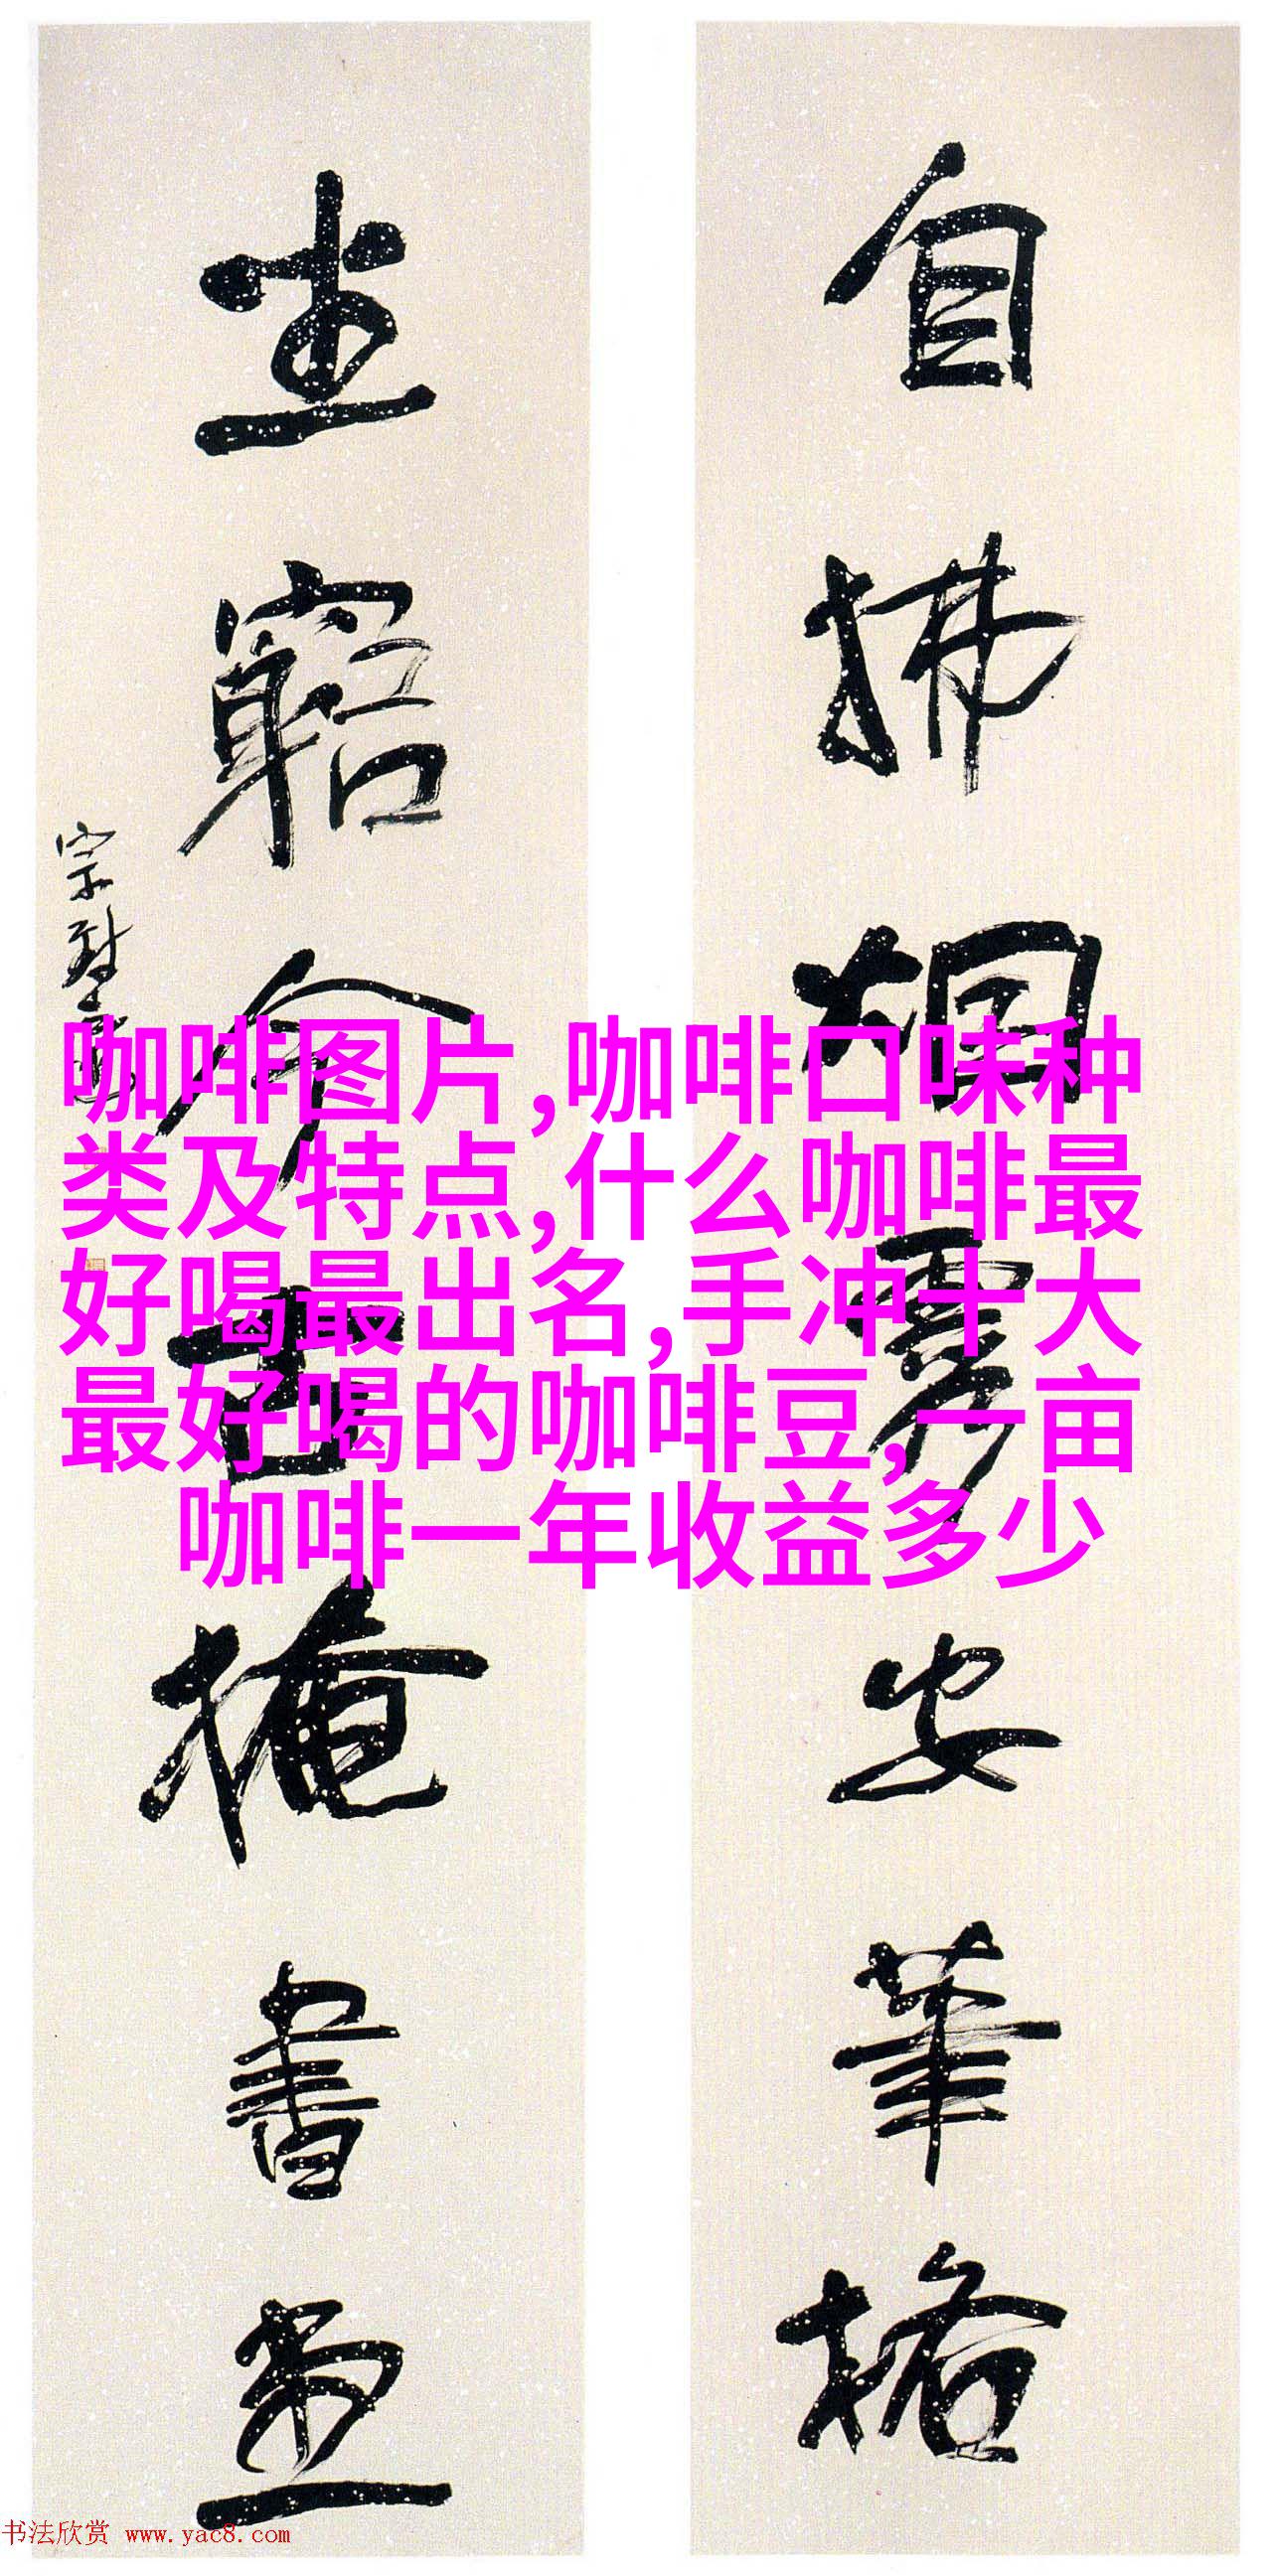 自拂烟霞安筆格
坐窮今古掩書堂
咖啡图片,咖啡口味种
类及特点,什么咖啡最
好喝最出名,手冲十大
最好喝的咖啡豆,一亩
咖啡一年收益多少
书法欣赏 www.yac8.com